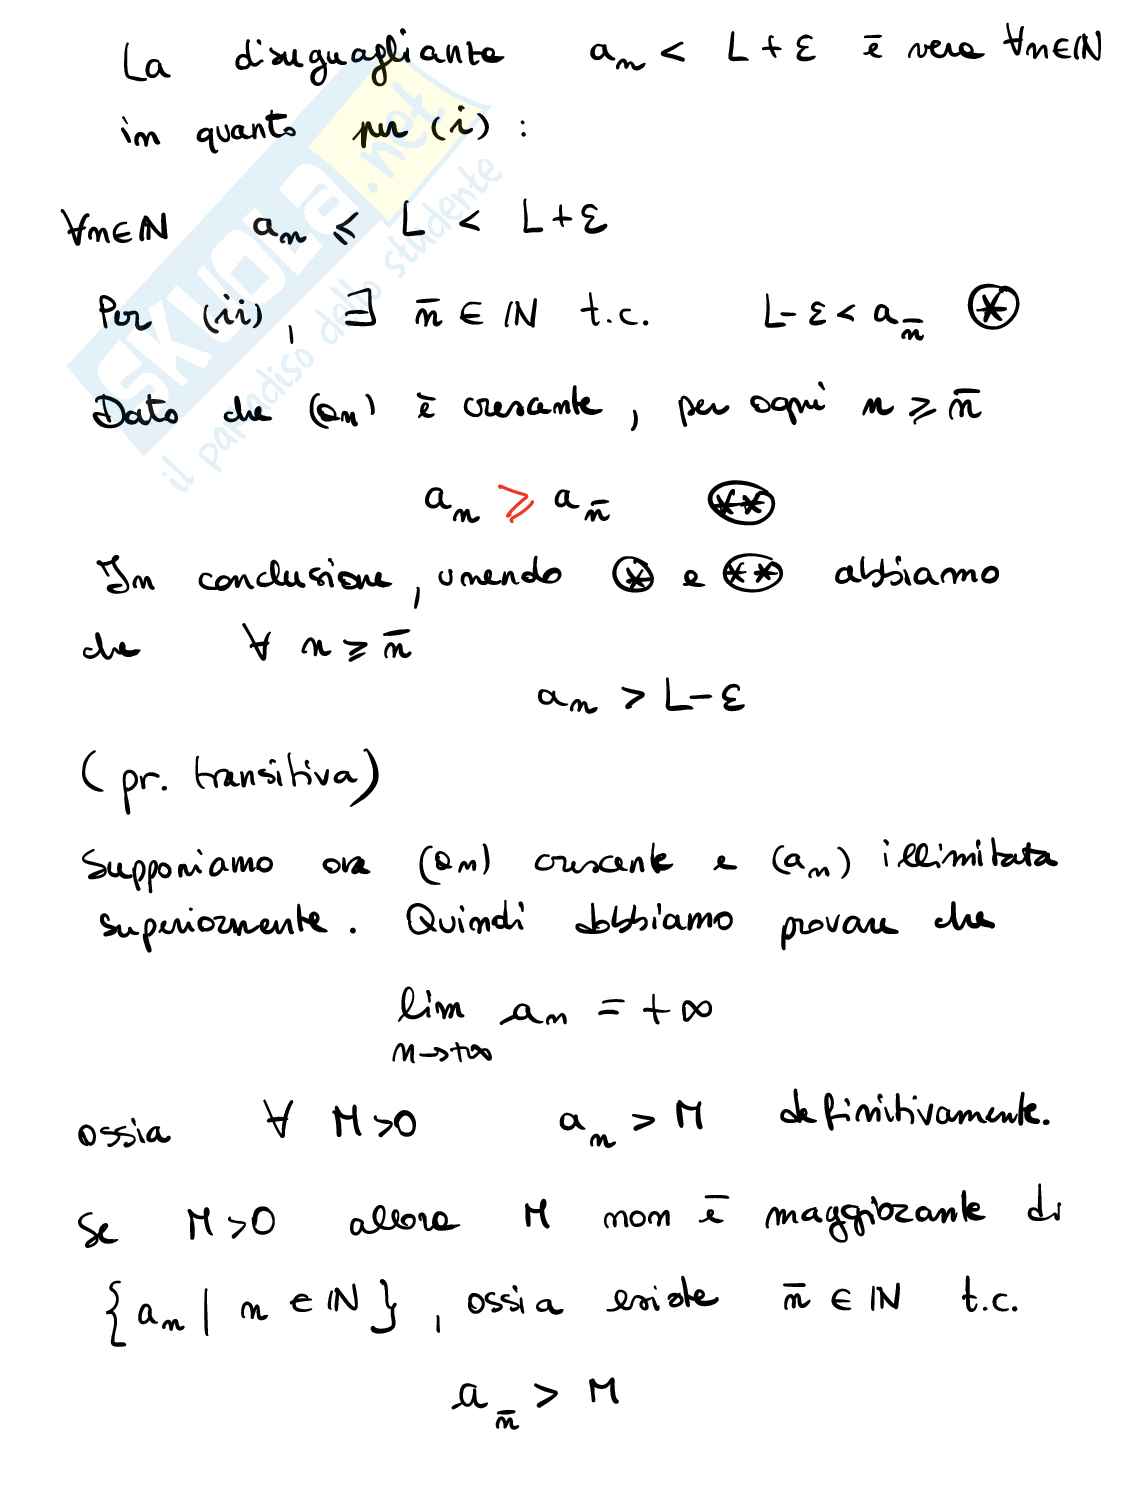 La disuguaglianza a_n < L + ε è vera ∀n∈ℕ
in quanto per (i) :
∀n∈ℕ a_n ⩽ L < L + ε
Per (ii), ∃ n̄ ∈ ℕ t.c. L - ε < a_n̄ ⊛
Dato che (a_n) è crescente, per ogni n ⩾ n̄
a_n ⩾ a_n̄ (**)
In conclusione, unendo ⊛ e (**) abbiamo
che ∀ n ⩾ n̄
a_n > L - ε
(pr. transitiva)
Supponiamo ora (a_n) crescente e (a_n) illimitata
superiormente. Quindi dobbiamo provare che
lim a_n = +∞
n→+∞
ossia ∀ M>0 a_n > M definitivamente.
Se M>0 allora M non è maggiorante di
{a_n | n ∈ ℕ}, ossia esiste n̄ ∈ ℕ t.c.
a_n̄ > M
SKUOLA.net
il paradiso dello studente